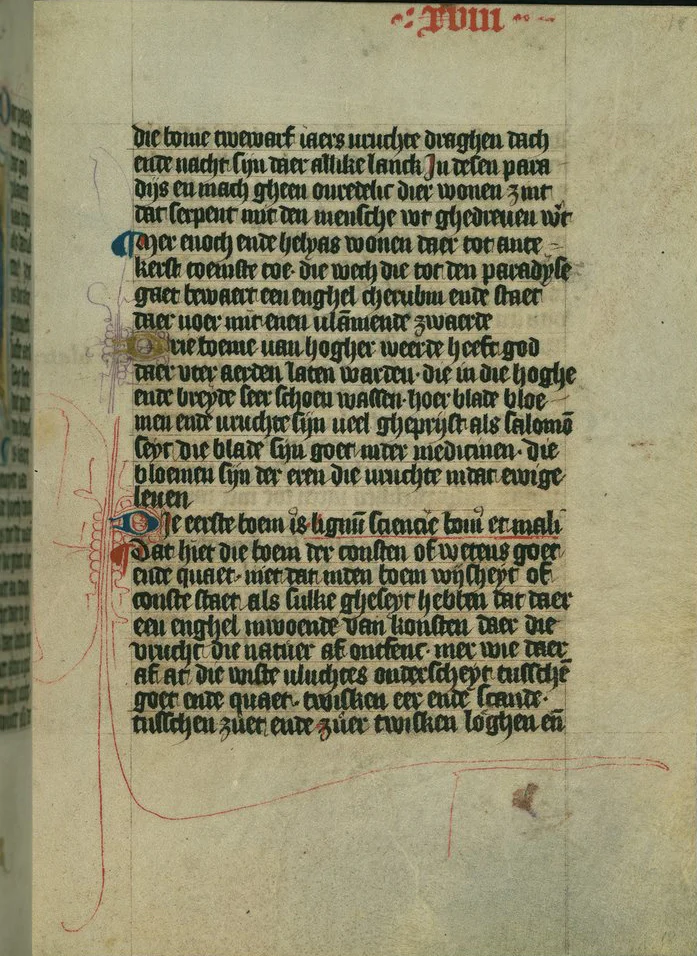 xviii
die bome twewarf iaers vruchte draghen dach
ende nacht sijn daer allike lanck In desen para
dijs en mach gheen onredelic dier wonen zint
dat serpent mit den mensche wt ghedreuen wt
Mer enoch ende helyas wonen daer tot ante
kerst toemste toe· die wech die tot den paradyse
gaet bewaert een enghel cherubin ende staet
daer voer mit enen vlāmende zwaerde
Drie boeme van hogher weerde heeft god
daer vter aerden laten warden· die in die hoghe
ende breyde seer schoen wassen· hoer blade bloe
men ende vruchte sijn veel gheprijst als salomō
seyt die blade sijn goet inder medicinen· die
bloemen sijn der eren die vruchte indat ewige
leuen
Die eerste boem is lignū sciencie boni et mali
Dat hiet die boem der consten of wetens goet
ende quaet· niet dat inden boem wijsheyt of
conste staet als sulke gheseyt hebben dat daer
een enghel inwoende van konsten daer die
vrucht die natuer af ontfenc· mer wie daer
af at die wiste vluchtes onderscheyt tusschē
goet ende quaet· twisken eer ende scande·
tusschen zuet ende zuer twisken loghen eñ